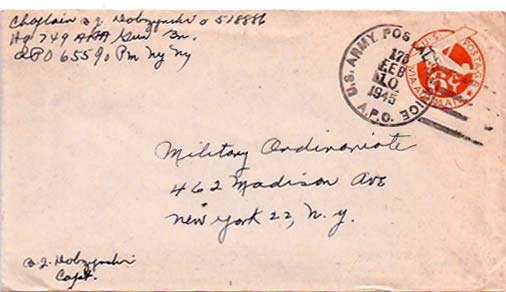 Chaplain B J Dobzynski O 518886
Hq 749 AAA Gun Bn.
APO 655 % Pm Ny Ny
U.S. ARMY POSTAL SERVICE
A.P.O.
178
FEB
10
1945
U.S. POSTAGE
6¢
VIA AIR MAIL
Military Ordinariate
462 Madison Ave
New York 22, N.Y.
B. J. Dobzynski
Capt.